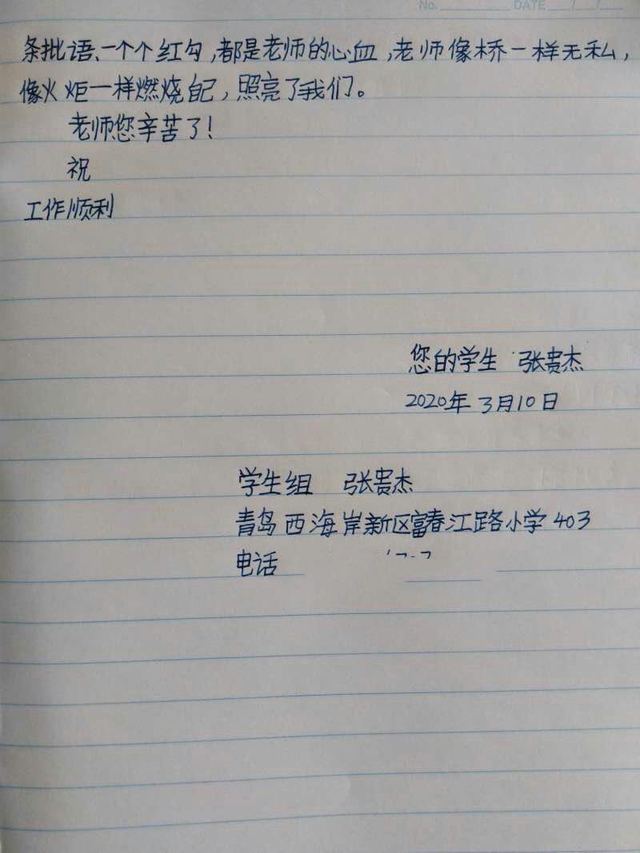 No. DATE / /
条批语、一个个红勾,都是老师的心血,老师像桥一样无私,
像火炬一样燃烧自己,照亮了我们。
老师您辛苦了!
祝
工作顺利
您的学生 张贵杰
2020年3月10日
学生组 张贵杰
青岛西海岸新区富春江路小学403
电话